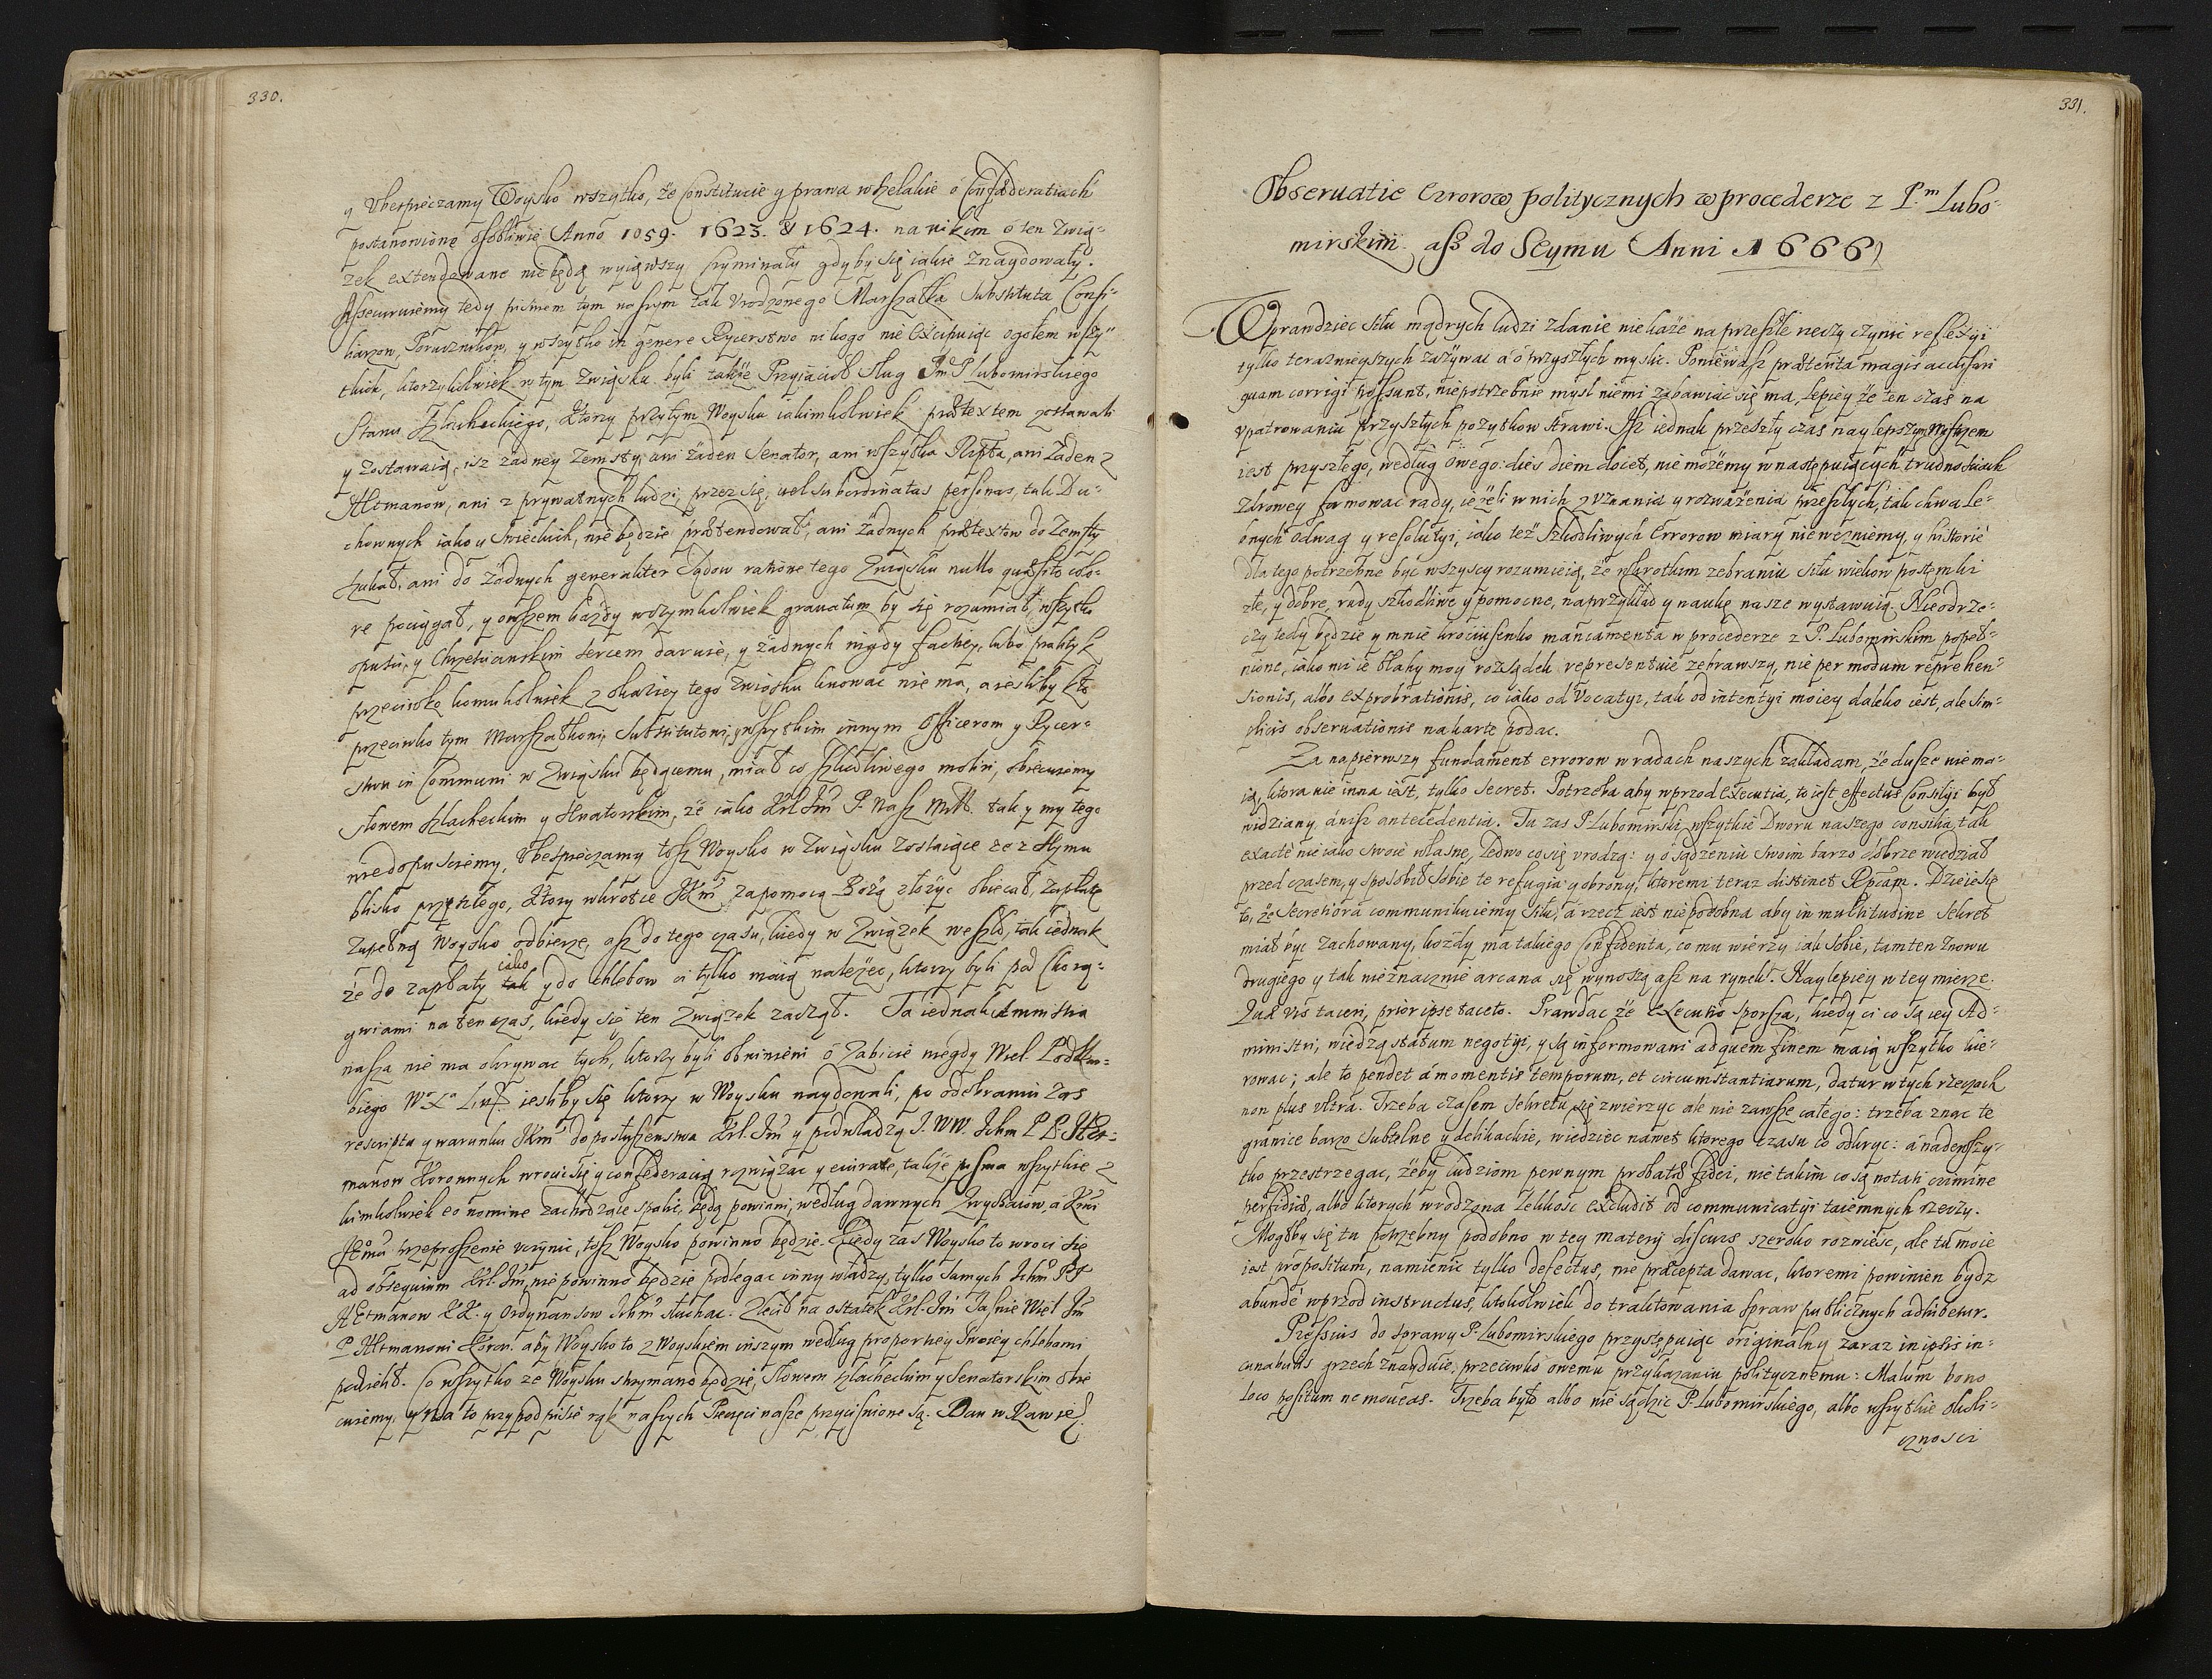 330.
y Vbespieczamy Woysko wszytko, że Constitucie y prawa wszelakie o Confæderatiach
postanowione osobliwie Anno 1059. 1623. & 1624. na nikim o ten Zwią-
zek extendowane nie będą wyiąwszy kryminały gdyby się iakie znaydowały.
Assecuruiemy tedy pismem tym naszym tak Vrodzonego Marszałka Substituta Consi-
liarzow, Porucznikow, y wszytko in genere Rycerstwo nikogo nie excipuiąc ogołem wszy-
tkich, ktorzykolwiek w tym Związku byli także Przyiacioł Sług Jm P Lubomirskiego
Stanu Szlacheckiego, Ktorzy przytym Woysku iakimkolwiek prætextem zostawali
y zostawaią, isz żadney Zemsty, ani żaden Senator, ani wszytka Rzpta, ani Żaden z
Hetmanow, ani z prywatnych ludzi, przez się, vel subordinatas personas, tak Du-
chownych iako y Swieckich, nie będzie prætendował, ani żadnych prætextow do Zemsty
szukał, ani do żadnych generaliter Sądow ratione tego Związku nullo quæsito colo-
re pociągał, y owszem każdy wczymkolwiek gravatum by się rozumiał, wszytko
opuści, y Chrzescianskim sercem daruie, y żadnych nigdy factiey, lubo praktyk
przeciwko komukolwiek z okaziey tego związku knować nie ma, a iesliby kto
przeciwko tym Marszałkowi, Substitutowi, y wszytkim innym Officerom y Rycer-
stwu in Communi w Związku będącemu, miał co szkodliwego moliri, obiecuiemy
słowem szlacheckim y Senatorskim, że iako Krl. Jm P. Nasz Młł. tak y my tego
niedopuściemy, Vbespieczamy tosz Woysko w Związku zostaiące że z Seymu
blisko przyszłego, Ktory wkrotce JKm zapomocą Bożą złożyc obiecał, Zapłatę
Zupełną Woysko odbierze, asz do tego czasu, kiedy w Związek weszło, tak iednak
że do zapłaty tak iako y do chlebow ci tylko maią należec, ktorzy byli pod Chorą-
gwiami na ten czas, kiedy się ten Związek zaczął. Ta iednak Amnistia
nasza nie ma okrywac tych, ktorzy byli obwinieni o Zabicie niegdy Wiel. Podskar-
biego Wo Xo Litt. iesliby się ktorzy w Woysku naydowali, po odebraniu zas
rescriptu y warunku JKm do posłuszenstwa Krl. Jm y pod władzą J. WW. Ichm P P. Het-
manow Koronnych wrocic się y confederacią rozwiązac y eiurare, także pisma wszytkie z
kimkolwiek eo nomine zachodzące spalic, będą powinni, według dawnych Zwyczaiow, a Kmi
Jemu przeproszenie vczynic, tosz Woysko powinno będzie. Kiedy zas Woysko to wroci się
ad obsequium Krl. Jm, nie powinno będzie podlegac inny władzy, tylko samych Ichm PP
Hetmanow KK. y Ordynansow Ichm słuchac. Zlecił na ostatek Krl. Jm Jasnie Wiel Jm
P Hetmanowi Koron. aby Woysko to z Woyskiem inszym według proporcyey swoiey chlebami
podzielił. Co wszytko ze Woysku strzymano będzie, Słowem szlacheckim y Senatorskim obie
cuiemy, y na to przy podpisie rąk naszych Pieczęci nasze przycisnione są. Dan w Rawie

331.
Obseruatie Errorow politycznych w procederze z P.m Lubo-
mirskim. asz do Seymu Anni 1666
Wprawdziec siłu mądrych ludzi zdanie nie każe na przeszłe rzeczy czynic reflexyi
tylko teraznieyszych zażywac a o przyszłych myslic. Poniewasz præterita magis accusari
quam corrigi possunt, niepotrzebnie mysl niemi zabawiac się ma, lepiey że ten czas na
vpatrowaniu przyszłych pożytkow strawi. Isz iednak przeszły czas naylepszym Mistrzem
iest przyszłego, według owego: dies diem docet, nie możemy w następuiących trudnosciach
zdrowey formowac rady, ieżeli w nich z vznania y rozważenia przeszłych, tak chwale-
bnych odwag y resolutyi, iako też szkodliwych Errorow miary nie wezniemy, y historie
dla tego potrzebne byc wszyscy rozumieią, że wkrotkim zebraniu siłu wiekow postempki
złe, y dobre, rady szkodliwe y pomocne, na przykład y naukę nasze wystawuią. Nie odrze-
czy tedy będzie y mnie krociusienko mancamenta w procederze z P. Lubomirskim popeł-
nione, iako mi ie błahy moy rozsądek representuie zebrawszy, nie per modum reprehen-
sionis, albo exprobrationis, co iako od Vocatyi, tak od intentyi moiey daleko iest, ale sim-
plicis obseruationis na kartę podac.
Za napierwszy fundament errorow w radach naszych zakładam, że dusze niema-
ią, ktora nie inna iest, tylko Secret. Potrzeba aby wprzod executia, to iest effectus Consilyi był
widziany, anisz antecedentia. Tu zas P Lubomirski wszytkie Dworu naszego consilia, tak
exacte nie iako swoie własne, ledwo co się vrodzą: y o sądzeniu swoim barzo dobrze wiedział
przed czasem, y sposobił sobie te refugia y obrony, ktoremi teraz distinet Rpcam. Dzieie się
to, że Secretiora communikuiemy siłu, a rzecz iest niepodobna aby in multitudine Sekret
miał byc zachowany, każdy ma takiego Confidenta, co mu wierzy iak sobie, tamten znowu
drugiego y tak nieznacznie arcana się wynoszą asz na rynek. Naylepiey w tey mierze:
Quæ vis taceri, prior ipse taceto. Prawdac że Executio sporsza, kiedy ci co są iey Ad-
ministri, wiedzą statum negotyi, y są informowani ad quem finem maią wszytko kie-
rowac; ale to pendet a momentis temporum, et circumstantiarum, datur w tych rzeczach
non plus vltra. Trzeba czasem Sekretu się zwierzyc ale nie zawsze całego: trzeba znac te
granice barzo subtelne y delikackie, wiedziec nawet ktorego czasu co odkryc: a nadewszy-
tko przestrzegac, żeby ludziom pewnym probatæ fidei, nie takim co są notati crimine
perfidiæ, albo ktorych wrodzona lekkosc excludit od communicatyi taiemnych rzeczy.
Mogłby się tu potrzebny podobno w tey materyi discurs szeroko rozwiesc, ale tu moie
iest propositum, namienic tylko defectus, nie præcepta dawac, ktoremi powinien bydz
abunde wprzod instructus, ktokolwiek do traktowania spraw publicznych adhibetur.
Pressius do sprawy P. Lubomirskiego przystępuiąc originalny zaraz in ipsis in-
cunabulis grzech znayduię, przeciwko owemu przykazaniu politycznemu: Malum bono
loco positum ne moueas. Trzeba było albo nie sądzic P. Lubomirskiego, albo wszytkie okoli-
cznosci